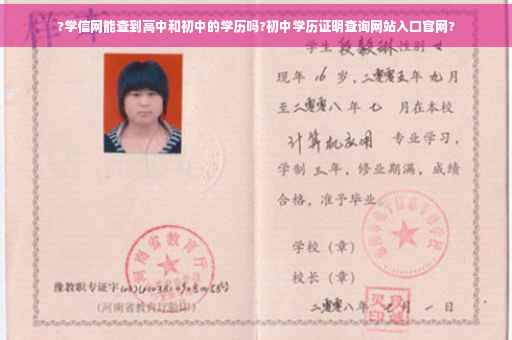 ?学信网能查到高中和初中的学历吗?初中学历证明查询网站入口官网?
样本
学生 段毅琳 性别 女
现年 16 岁，二零零五年 九 月
至二零零八年 七 月在本校
计算机应用 专业学习，
学制 三 年，修业期满，成绩
合格，准予毕业
学校（章）
校长（章）
二零零八年 七 月 一 日
河南省教育厅
豫教职专证字
（河南省教育厅验印）